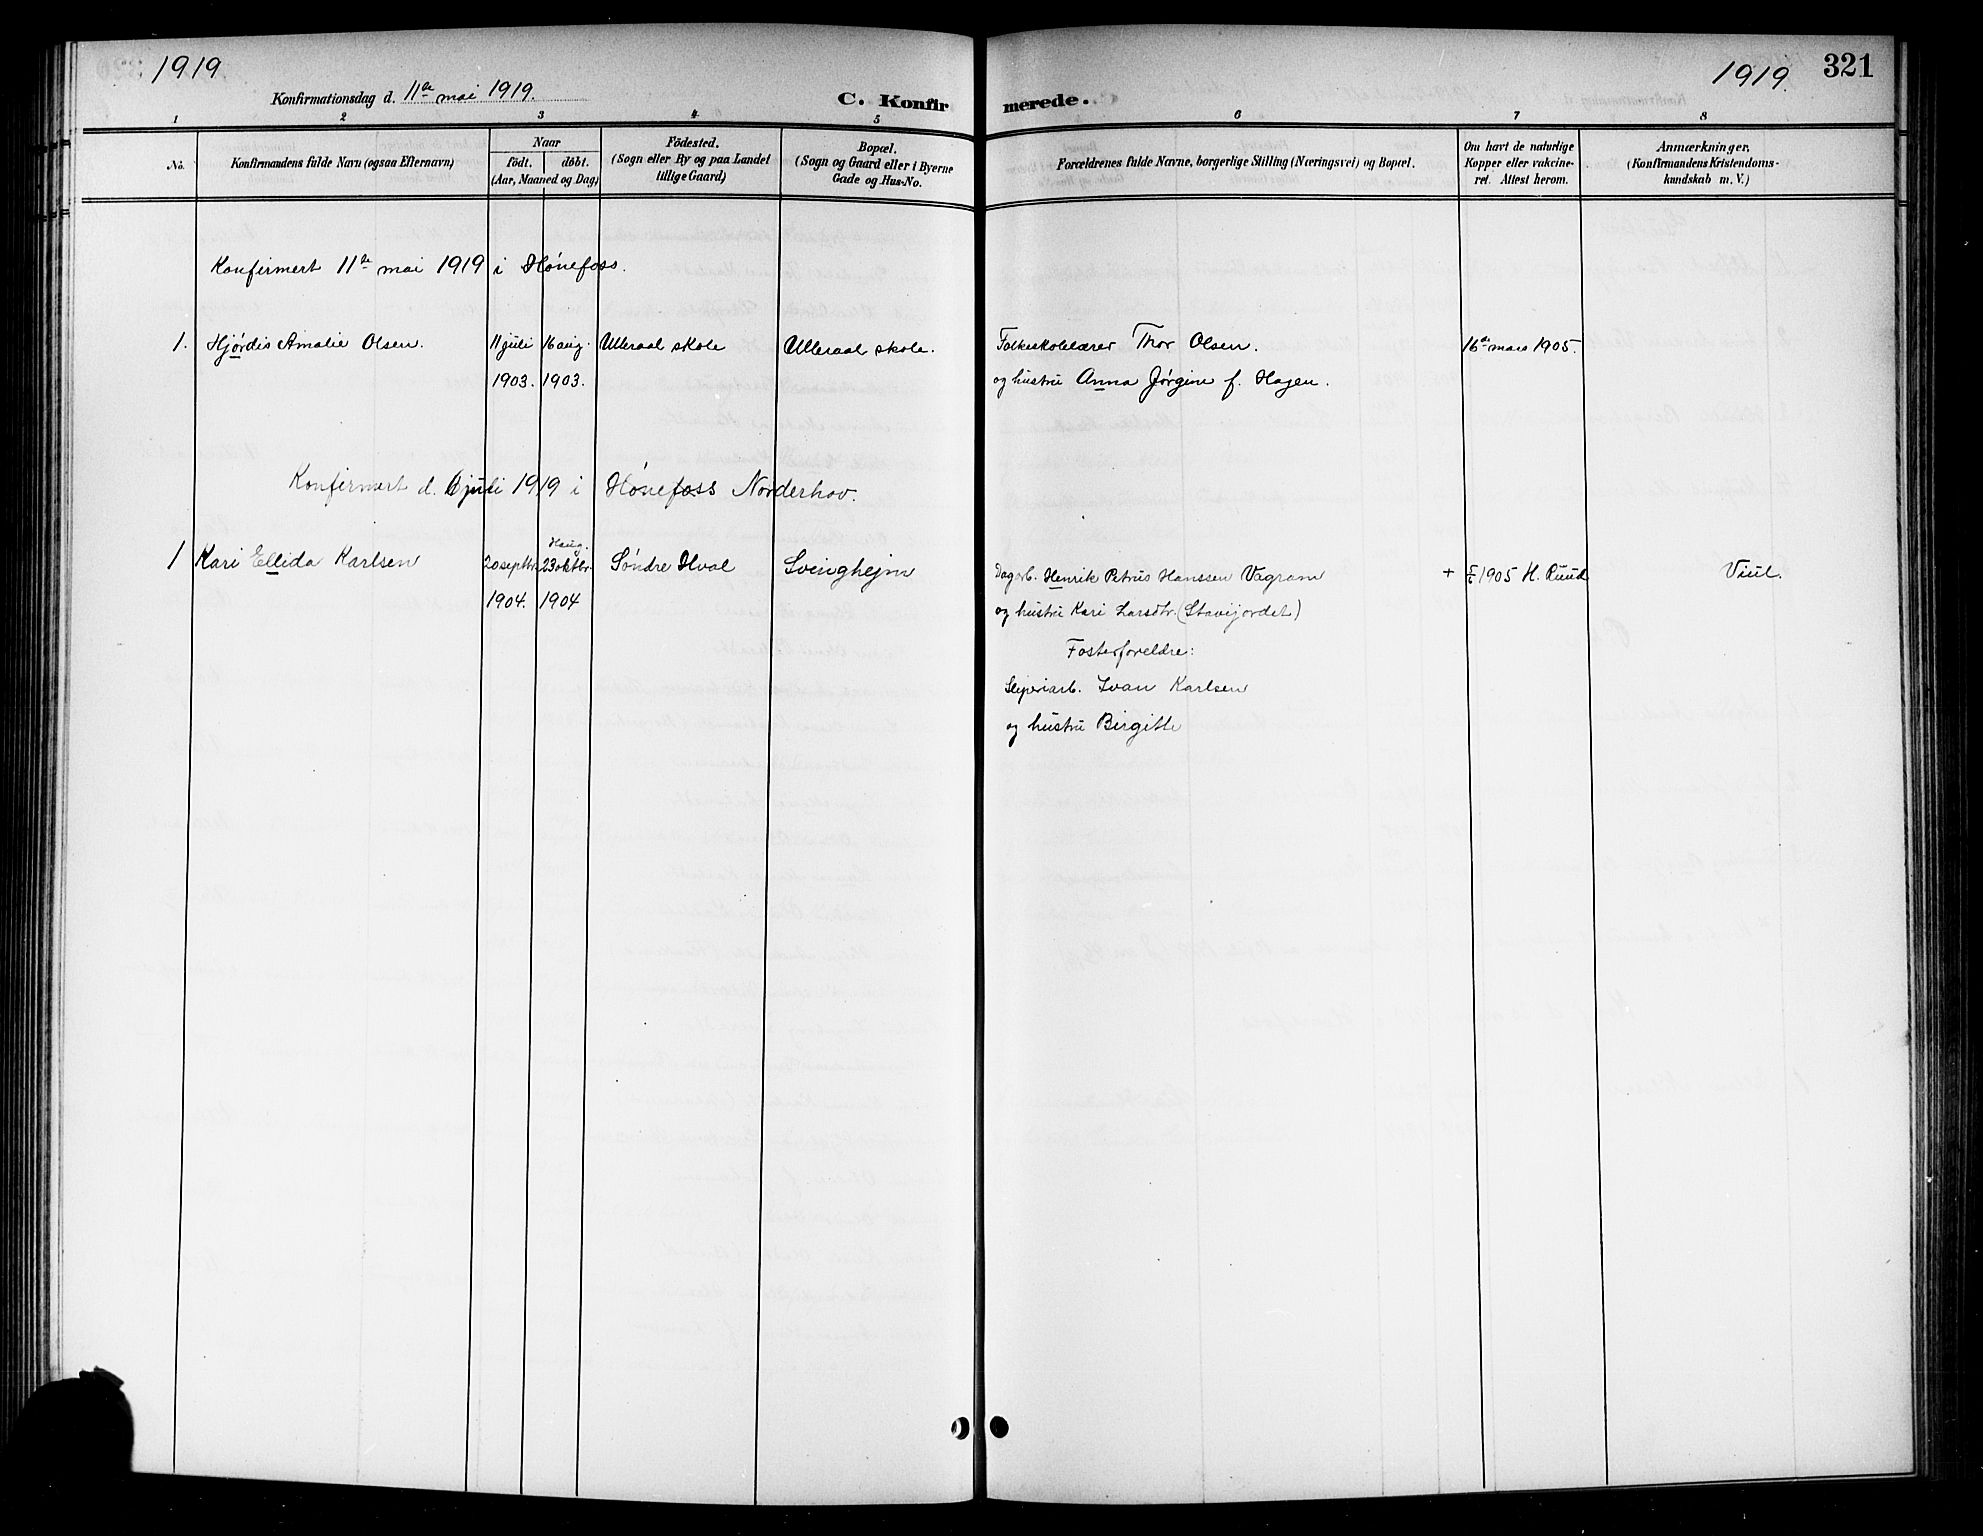 1919
Konfirmationsdag d. 11te mai 1919.
C. Konfirmerede.
1919.
321
1 2 3 4 5 6 7 8
No.
Konfirmandens fulde Navn (ogsaa Efternavn)
Naar
født. døbt.
(Aar, Maaned og Dag)
Fødested.
(Sogn eller By og paa Landet
tillige Gaard)
Bopæl.
(Sogn og Gaard eller i Byerne
Gade og Hus-No.
Forældrenes fulde Navne, borgerlige Stilling (Næringsvei) og Bopæl.
Om havt de naturlige
Kopper eller vakcine-
ret. Attest herom.
Anmærkninger.
(Konfirmandens Kristendoms-
kundskab m. V.)
Konfirmert 11te mai 1919 i Hónefoss.
1. Hjórdis Amalie Olsen. 11 juli 16 aug. Ulleraal skole Ulleraal skole. Folkeskolelærer Thor Olsen. 16de mars 1905.
1903. 1903. og hustru Anna Jórgine f. Hagen.
Konfirmert d. juli 1919 i Hónefoss Norderhov.
Haug.
1 Kari Ellida Karlsen 20 septbr. 23 oktbr. Sóndre Hval Svinghejm Dagarb. Henrik Petrus Hanssen Vagram + 1905 H. Ruud Viul.
1904. 1904 og hustru Kari Larsdtr. (Stavijordet)
Fosterforeldre:
Sliperiarb. Ivan Karlsen
og hustru Birgitte